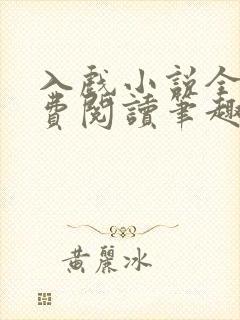 入戲小說全
費閱讀筆趣
黃麗冰